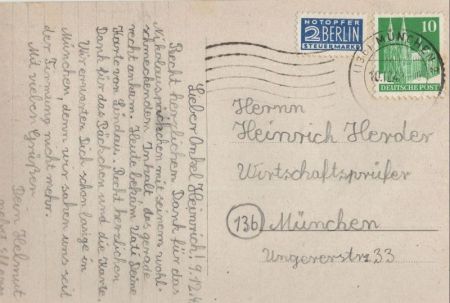 Lieber Onkel Heinrich! 9.12.4
Recht herzlichen Dank für das
Nikolauspäckchen mit seinem wohl-
schmeckendem Inhalt, das gerade
recht ankam. Heute bekam Vati Deine
Karte von Lindau. Recht herzlichen
Dank für das Päckchen und die Karte.
Wir erwarten Dich schon lange in
München, denn wir sahen uns seit
der Firmung nicht mehr.
Mit vielen Grüßen
Dein Helmut
NOTOPFER
2 BERLIN
STEUERMARKE
10
DEUTSCHE POST
(13b) MÜNCHEN
10.12.4
Herrn
Heinrich Herder
Wirtschaftsprüfer
13b München
Ungererstr. 33